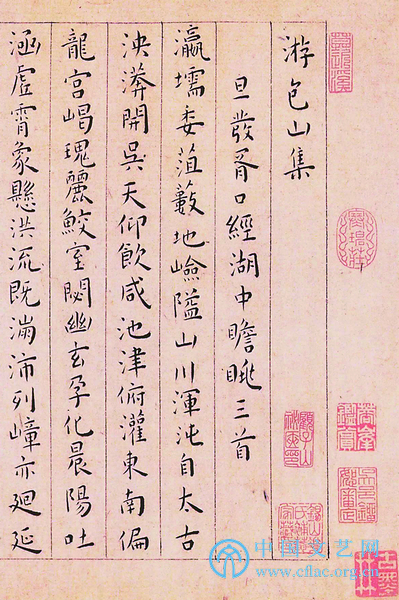 游包山集
旦發胥口經湖中瞻眺三首
瀛壖委菹藪地嶮隘山川渾沌自太古
泱漭開吳天仰飲咸池津俯灌東南偏
龍宮崵瑰麗鮫室閟幽玄孕化晨陽吐
涵虛霄象懸洪流既滿沛列嶂亦廻延
中国文艺网
www.cflac.org.cn